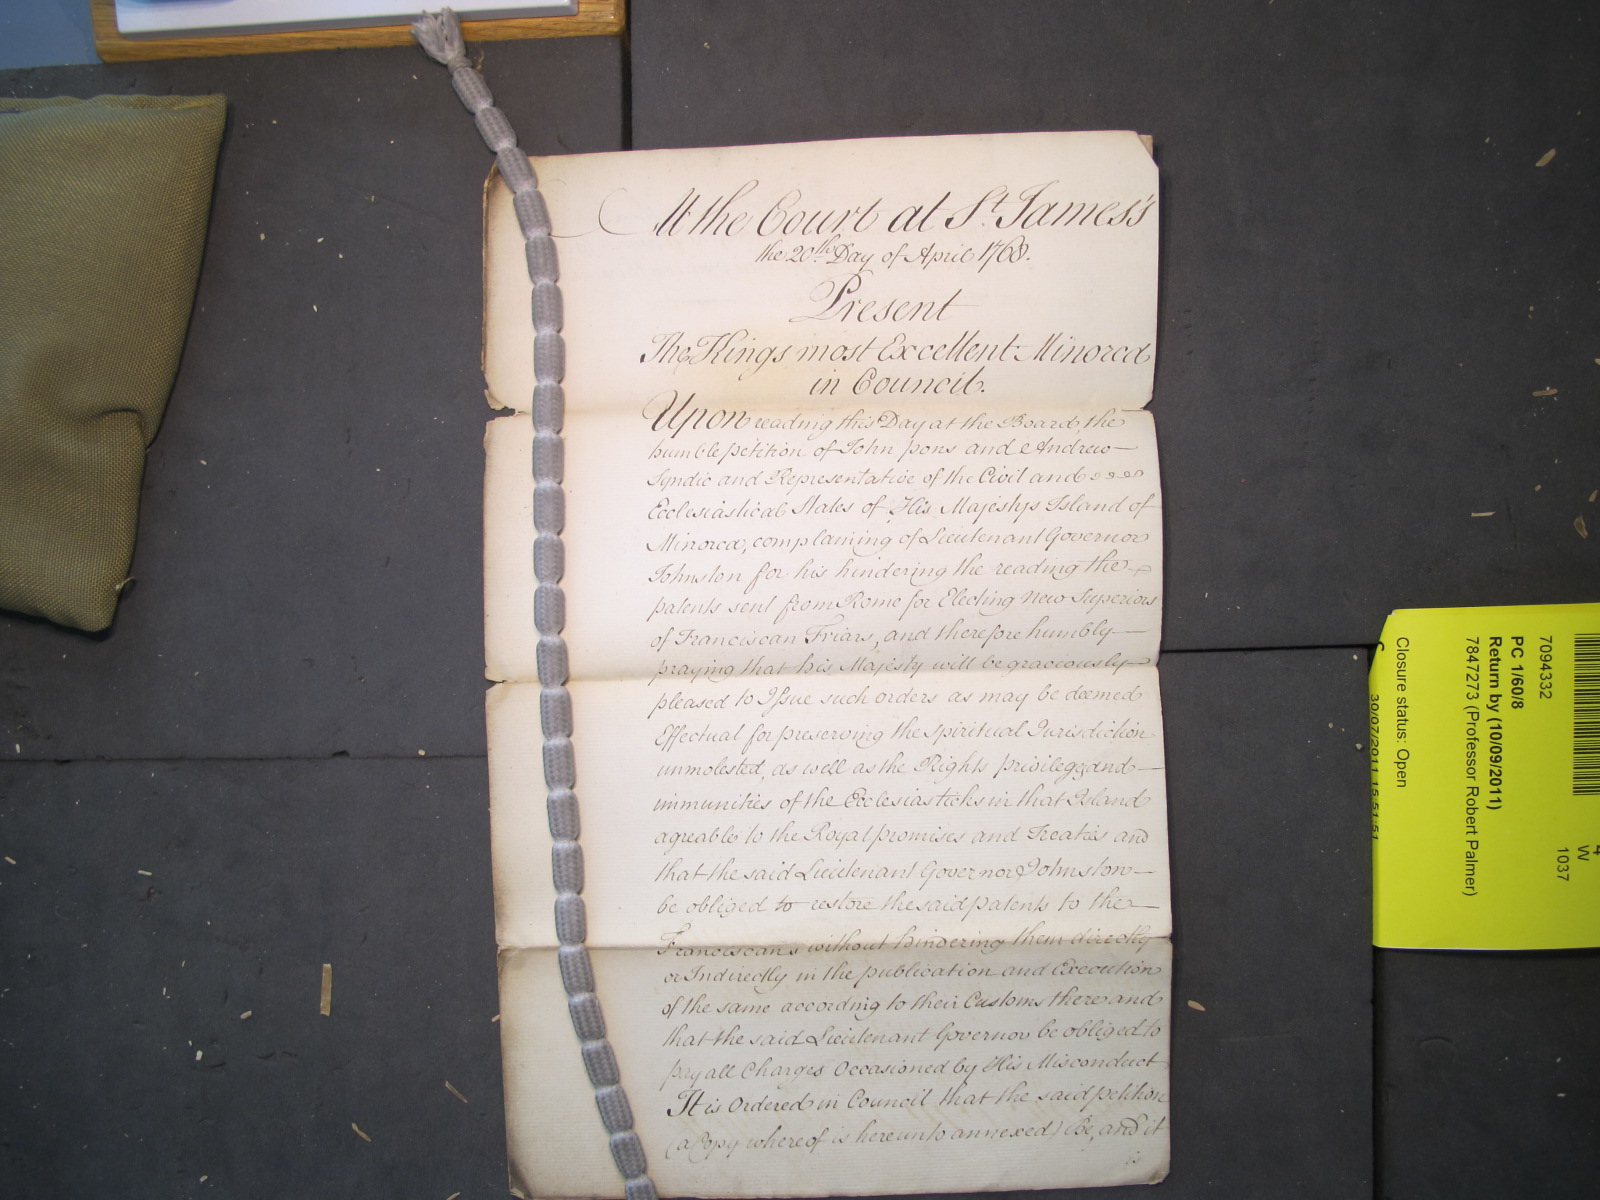 At the Court at St. James's
the 20th Day of April 1768.
Present
The Kings most Excellent Minorca
in Council.
Upon reading this Day at the Board, the
humble petition of John pons and Andrew
Syndic and Representative of the Civil and
Ecclesiastical States of His Majestys Island of
Minorca, complaining of Lieutenant Governor
Johnston for his hindering the reading the
patents sent from Rome for Electing New Superiors
of Franciscan Friars, and therefore humbly
praying that his Majesty will be graciously
pleased to Issue such orders as may be deemed
Effectual for preserving the spiritual Jurisdiction
unmolested, as well as the Rights privileg and
immunities of the Ecclesiasticks in that Island
agreable to the Royal promises and Treaties and
that the said Lieutenant Governor Johnston
be obliged to restore the said patents to the
Franciscans without hindering them directly
or Indirectly in the publication and Execution
of the same according to their Customs there and
that the said Lieutenant Governor be obliged to
pay all Charges Occasioned by His Misconduct
It is Ordered in Council that the said petition
(a Copy whereof is hereunto annexed) Be, and it
is
7094332
PC 1/60/8
Return by (10/09/2011)
7847273 (Professor Robert Palmer)
Closure status: Open
30/07/2011 15:51:51
4
W
1037